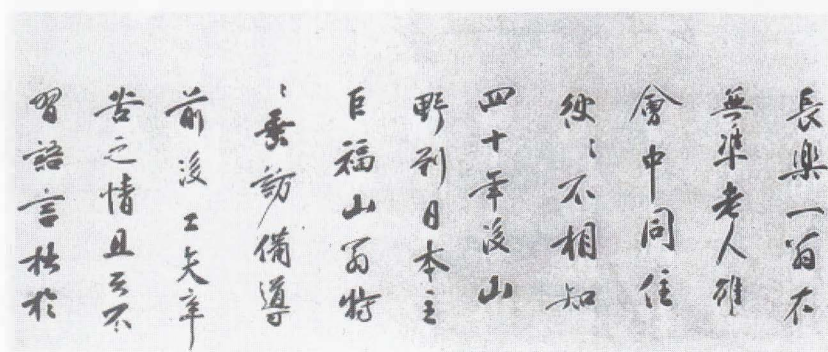 長樂一翁在
無準老人雄
會中同住
彼〻不相知
四十年後山
野到日本主
巨福山翁特
〻垂訪備導
前後工夫辛
苦之情且云不
習語言拙於